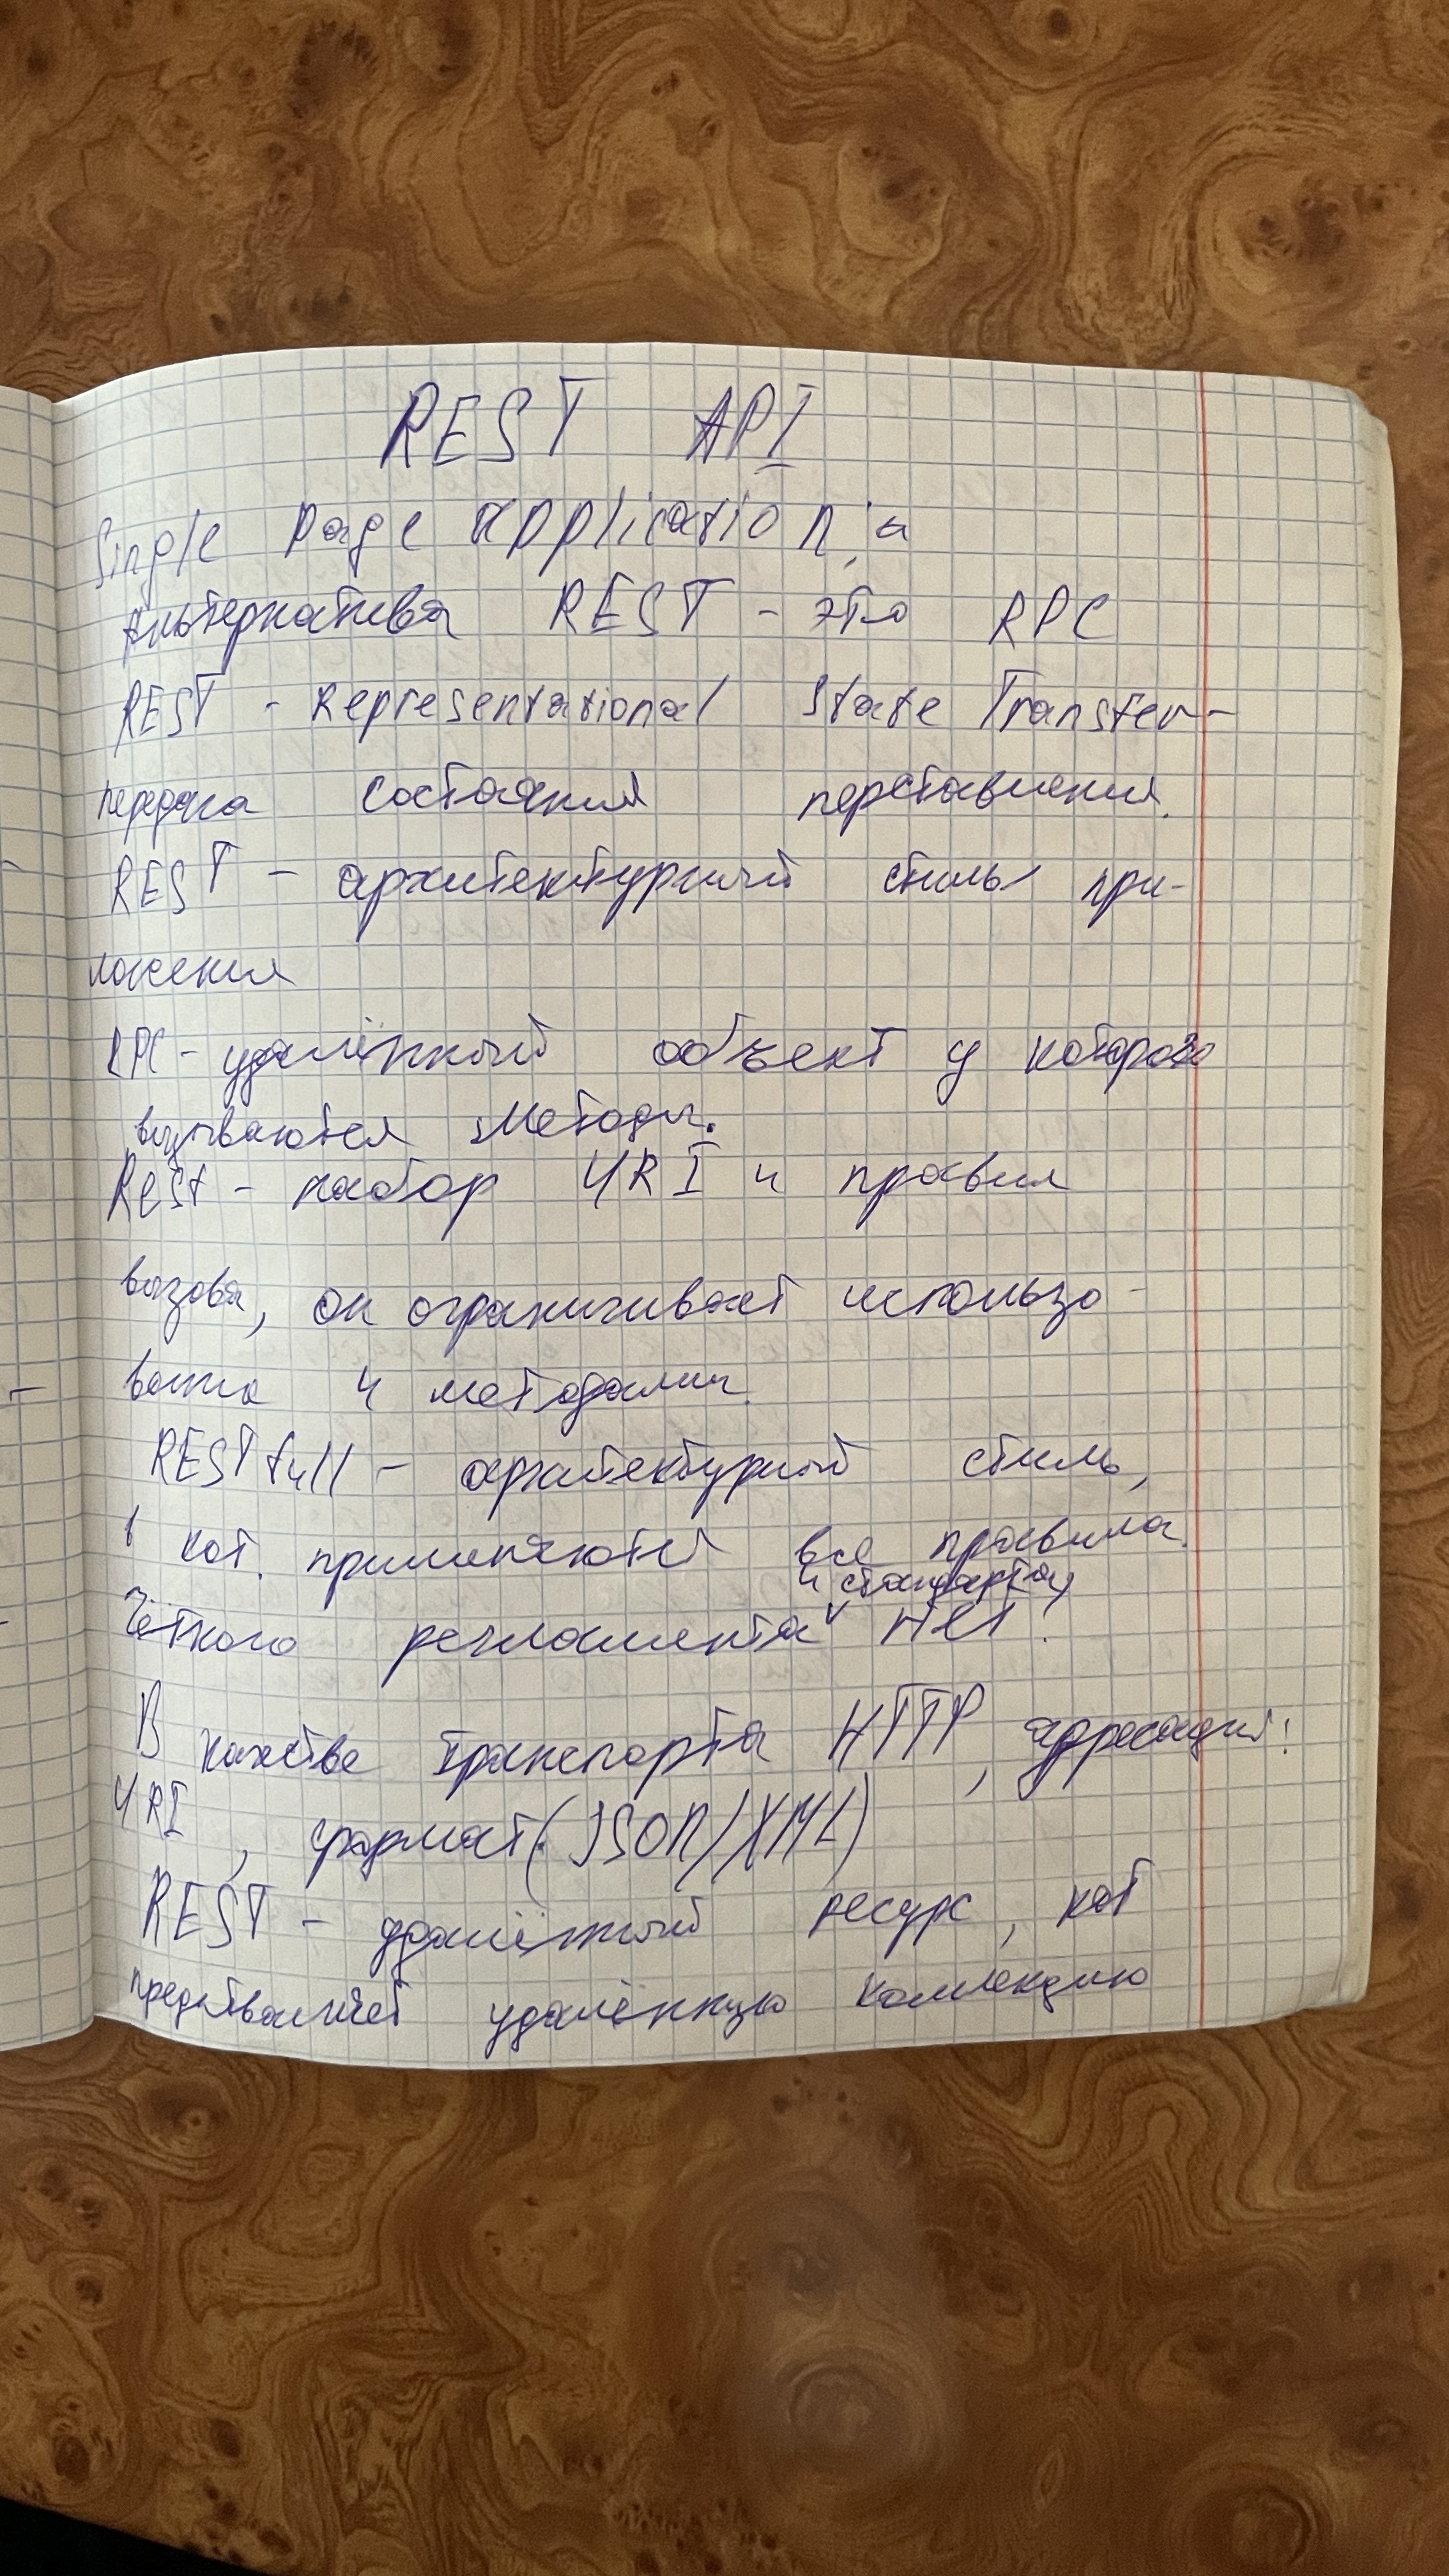 REST API
Single page application, а
Альтернатива REST - это RPC
REST - Representational State Transfer -
передача состояния перставления.
REST - архитектурный стиль при-
ложения
RPC - удалённый объект у которого
вызываются методы.
Rest - набор URI и правил
вызова, он ограничивает использо-
вание 4 методами.
RESTfull - архитектурный стиль,
в кот. применяются все правила.
и стандарта
Чёткого регламента нет!
В качестве транспорта HTTP, адресация:
URI, формат (JSON/XML)
REST - удалённый ресурс, кот
предствляет удалённую коллекцию